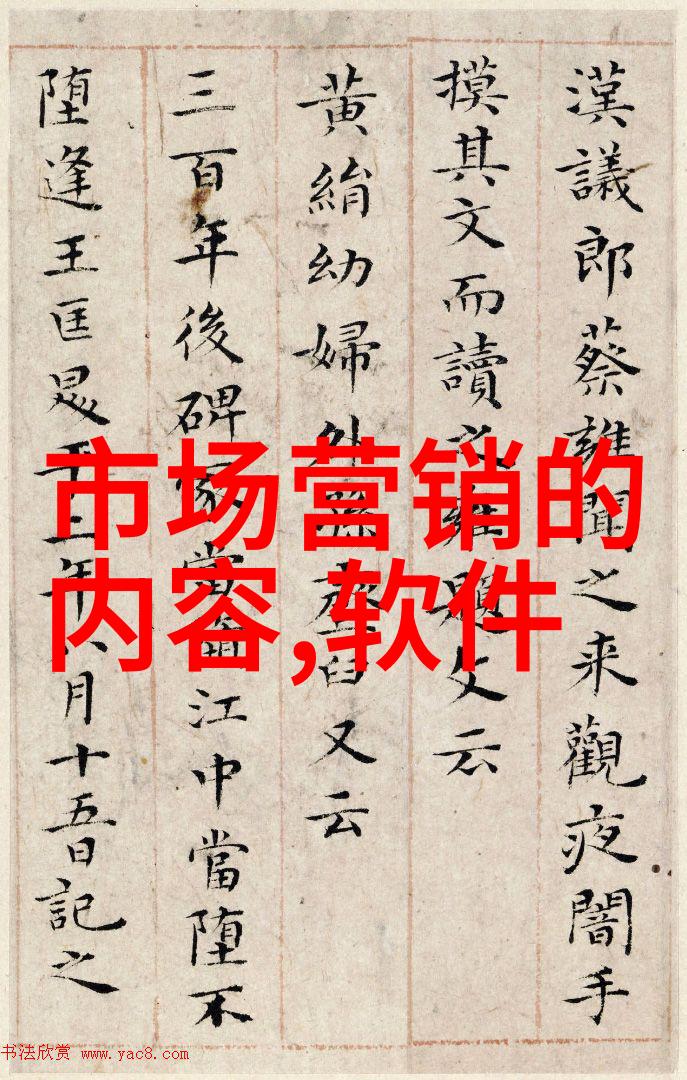 漢議郎蔡雍聞之来觀夜闇手
摸其文而讀之雍題文云
黄絹幼婦外孫臼又云
三百年後碑冢當堕江中當堕不
堕逢王匡昇平二年八月十五日記之
市场营销的
内容,软件
书法欣赏 www.yac8.com